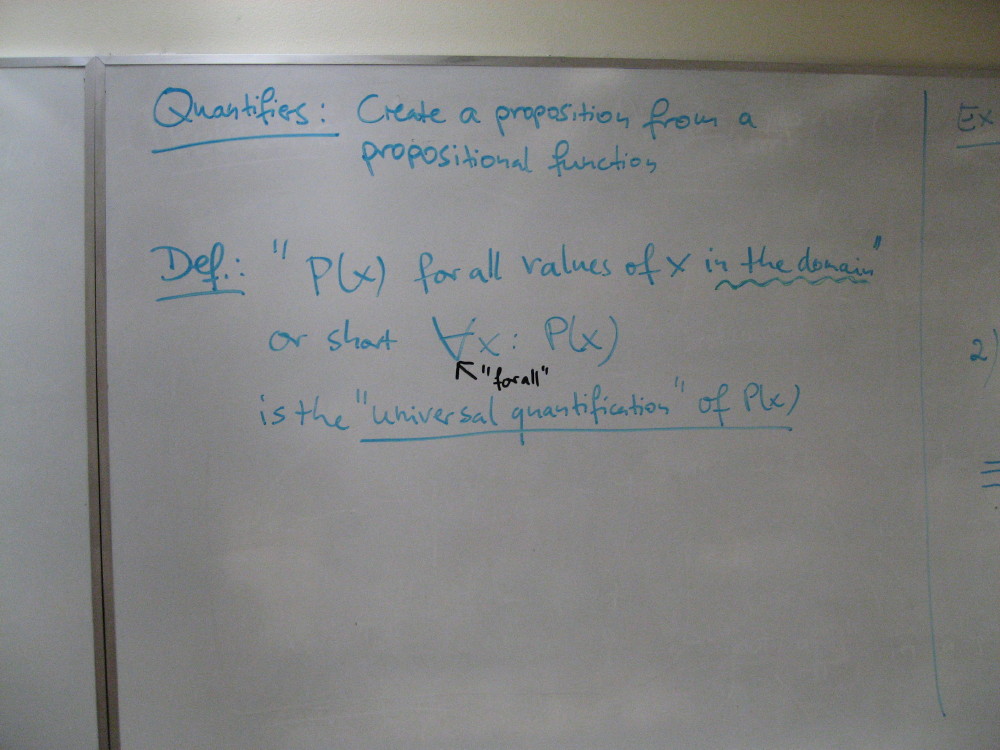 Quantifiers: Create a proposition from a
propositional function
Def.: "P(x) for all values of x in the domain"
or short ∀x: P(x)
↖"for all"
is the "universal quantification" of P(x)
Ex
2)